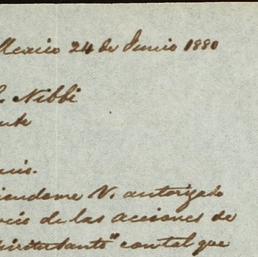 Mexico 24 de Junio 1880
Nibbi
nte
mio.
iendome V. autorizado
de las acciones de
Espiritu Santo" con tal que